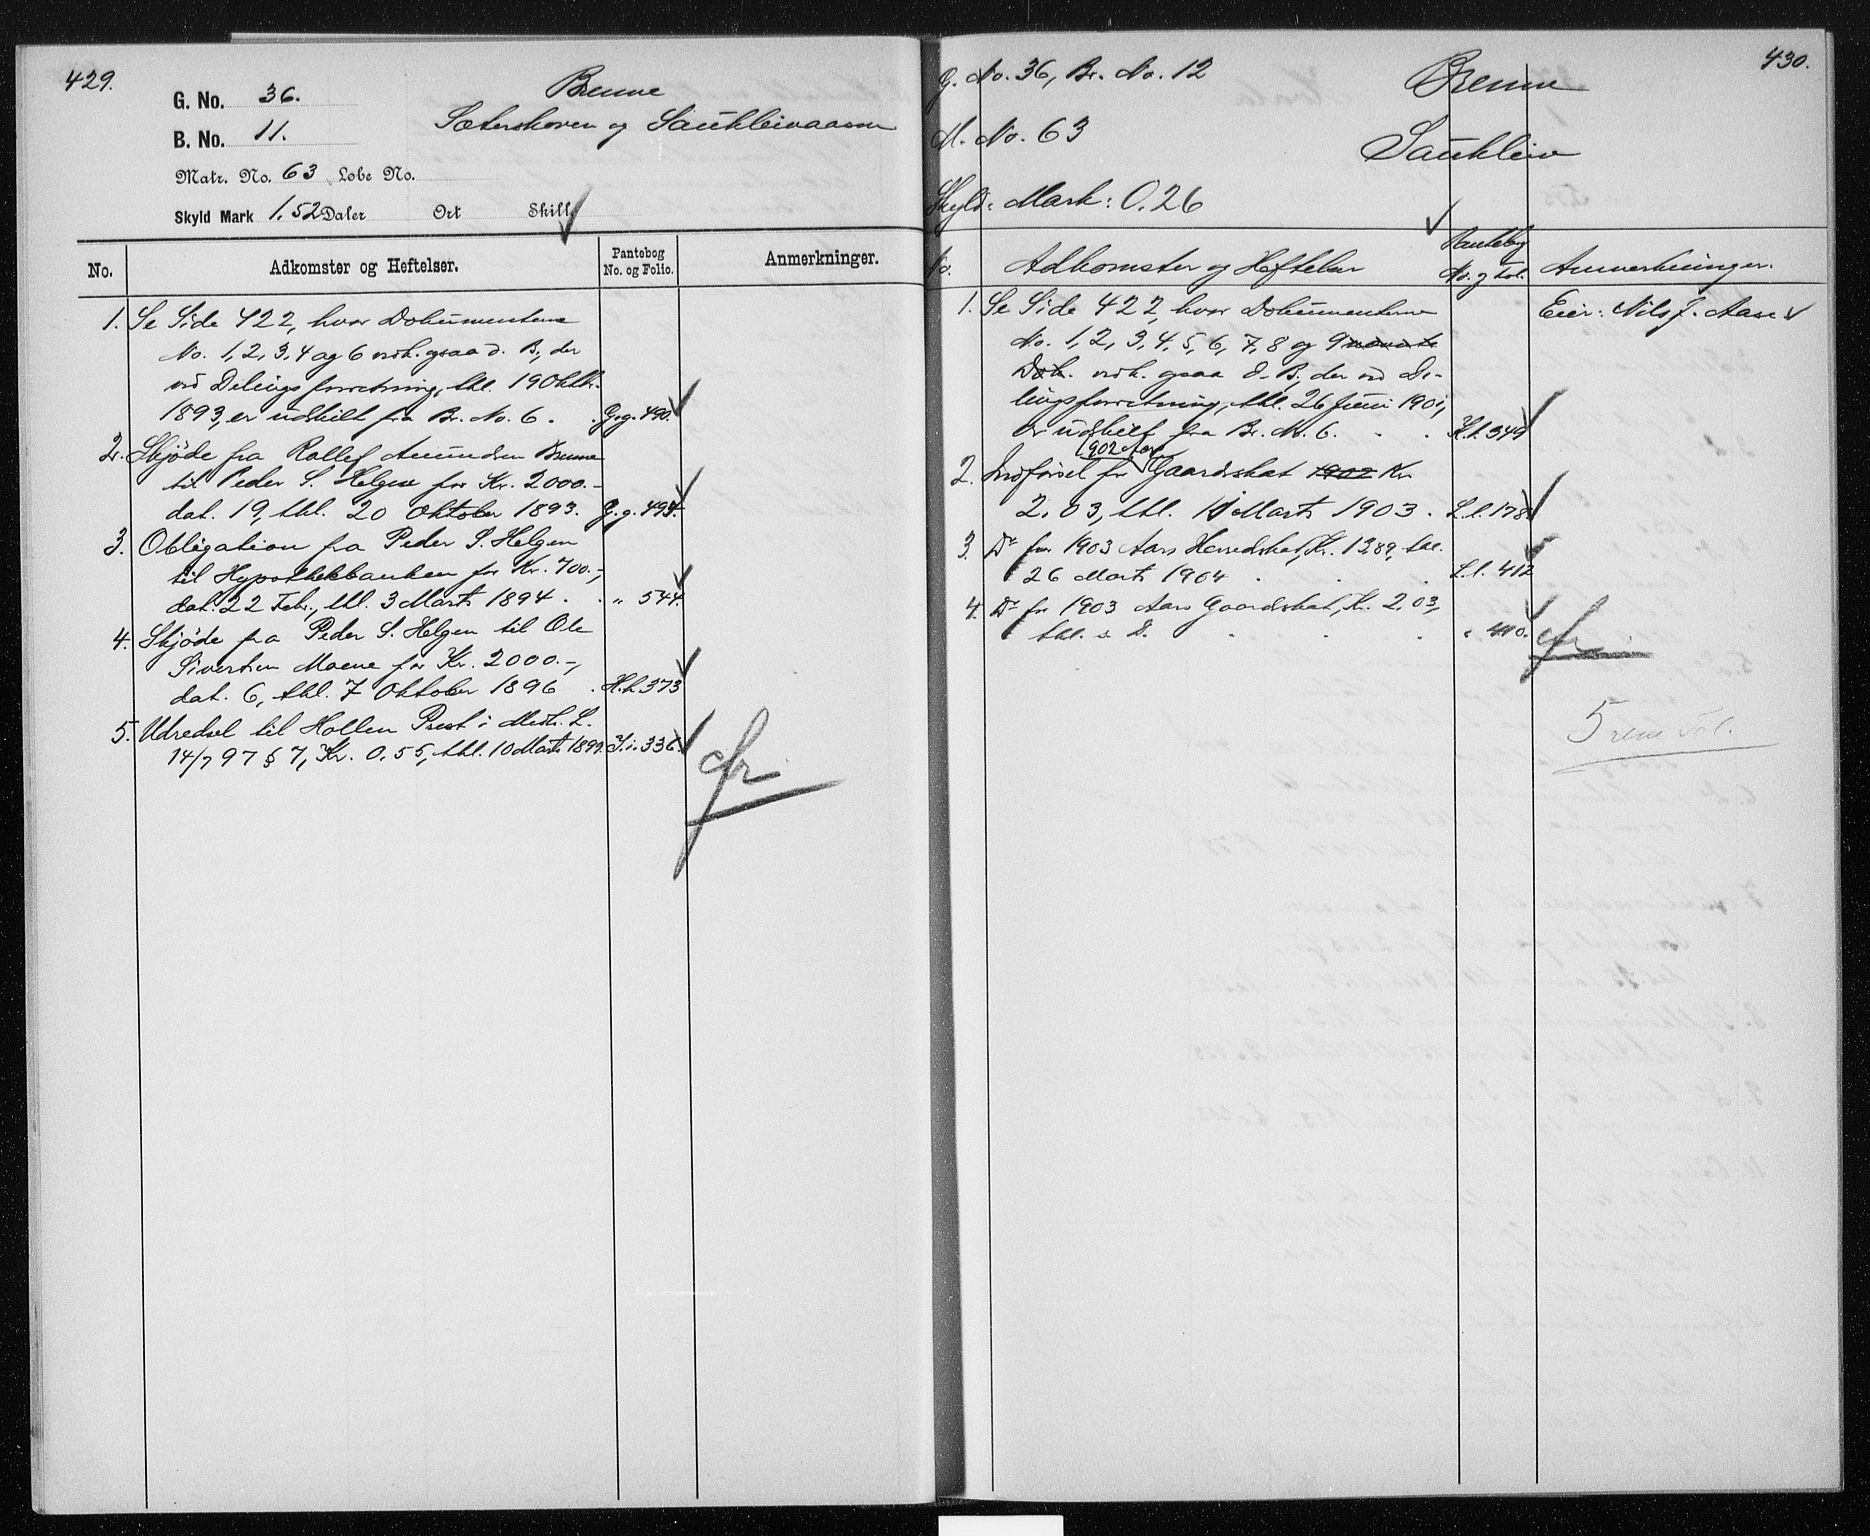 429.
G. No. 36.
B. No. 11.
Matr. No. 63 Løbe No.
Skyld Mark 1.52 Daler Ort Skill.
Brenne
Sæterskoven og Saukleivaasen
No. Adkomster og Heftelser. Pantebog No. og Folio. Anmerkninger.
1. Se Side 422, hvor Dokumenterne
No. 1, 2, 3, 4 og 6 vedk. ogsaa d. B., der
ved Delingsforretning, thl. 19 Oktbr.
1893, er udskilt fra Br. No. 6. G.g. 490.
2. Skjöde fra Rollef Amundsen Brenne
til Peder S. Helgen for Kr. 2000.-
dat. 19, thl. 20 Oktober 1893. G.g. 494.
3. Obligation fra Peder S. Helgen
til Hypothekbanken for Kr. 700.-,
dat. 22 Febr., thl. 3 Marts 1894. " 544.
4. Skjöde fra Peder S. Helgen til Ole
Sivertsen Moene for Kr. 2000.-,
dat. 6, thl. 7 Oktober 1896. H.h. 373
5. Udredsel til Hollen Prest i Medh. L.
14/7 97 § 7, Kr. 0.55, thl. 10 Marts 1899. I.i. 336.
430.
G. No. 36, Br. No. 12
M. No. 63
Skyld: Mark: 0.26
Brenne
Saukleiv
No. Adkomster og Heftelser Pantebog No. og Fol. Anmerkninger.
1. Se Side 422, hvor Dokumenterne Eier: Nils J. Aase
No. 1, 2, 3, 4, 5, 6, 7, 8 og 9
Dok. vedk. ogsaa d. B., der ved De-
lingsforretning, thl. 26 Juni 1901,
er udskilt fra Br. No. 6. K.k. 349
1902 Aars
2. Indførsel for Gaardskat 1902 Kr.
2.03, thl. 11 Marts 1903. L.l. 178
3. Do for 1903 Aars Herredskat, Kr. 13.89, thl.
26 Marts 1904 L.l. 412
4. Do for 1903 Aars Gaardskat, Kr. 2.03,
thl. s. D. " 410.
5 rene Fol.